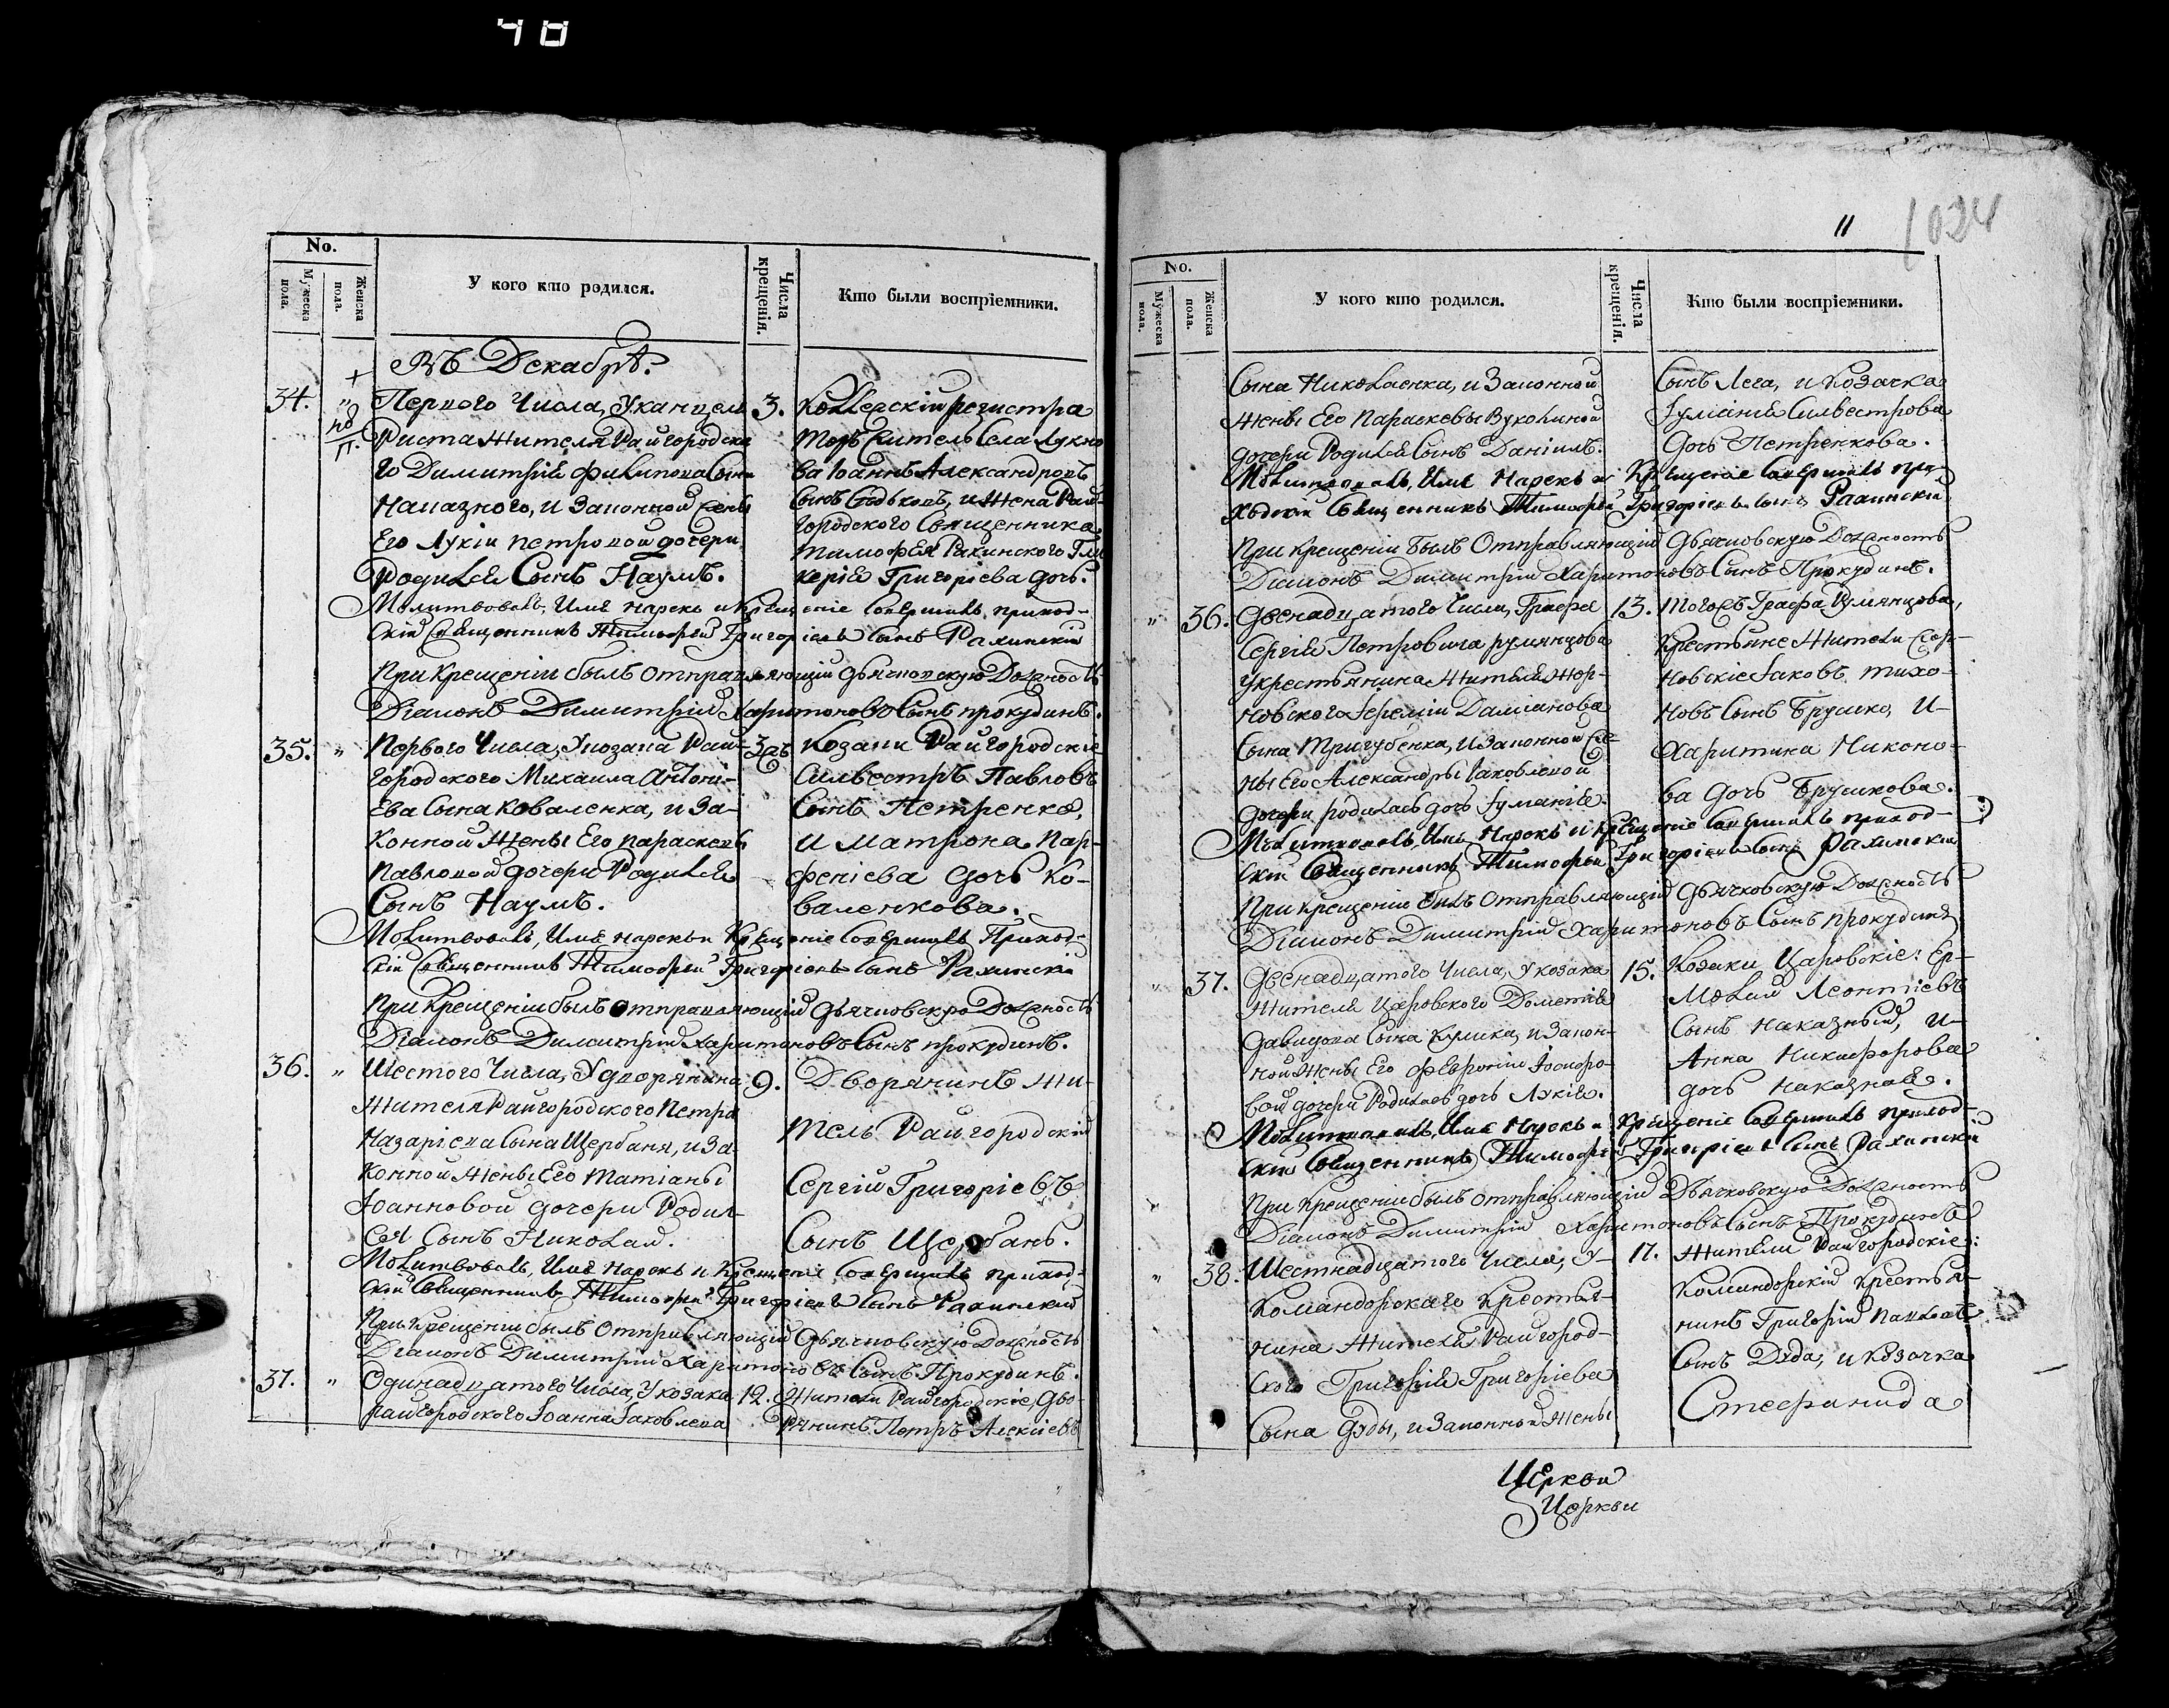 48
No.
Мужеска пола.
Женска пола.
У кого кто родился.
Числа крещенія.
Кто были воспріемники.
Въ Декабрѣ.
34. Первого Числа, У канцеля-
риста Жителя Райгородска-
го Димитрія Филипова Сына
Наказного, и Законной жены
Его Лукіи Петровой дочери
Родился Сынъ Наумъ.
3. Коллежскій регистра
торъ житель Села Лукно
ва Іоаннъ Александровъ
Сынъ, и Жена Рай-
городского Священника
Тимофея Рахинского Гли
керія Григоріева дочь.
Молитвовалъ, Имя нарекъ и Крещеніе Совершилъ приход-
скій Священникъ Тимофей Григоріевъ Сынъ Рахинскій
При Крещеніи былъ отправляющій дьячковскую Должность
Діаконъ Димитрій Харитоновъ Сынъ Прокудинъ.
35. " Первого Числа, У козака Рай-
городского Михаила Антоні-
ева Сына Коваленка, и За-
конной Жены Его Параскевы
Павловой дочери Родился
Сынъ Наумъ.
3. Козаки Райгородскіе
Силвестръ Павловъ
Сынъ Петренко,
и Матрона Пар-
феніева дочь Ко-
валенкова.
Молитвовалъ, Имя нарекъ и Крещеніе Совершилъ Приход-
скій Священникъ Тимофей Григоріевъ Сынъ Рахинскій
При Крещеніи былъ отправляющій дьячковскую Должность
Діаконъ Димитрій Харитоновъ Сынъ Прокудинъ.
36. " Шестого Числа, У дворянина
Жителя Райгородского Петра
Назаріева Сына Щербаня, и За
конной Жены Его Татіаны
Іоанновой дочери Родил-
ся Сынъ Николай.
9. Дворянинъ Жи-
тель Райгородскій
Сергій Григоріевъ
Сынъ Щербань.
Молитвовалъ, Имя Нарекъ и Крещеніе Совершилъ приход-
скій Священникъ Тимофей Григоріевъ Сынъ Рахинскій
При Крещеніи былъ Отправляющій Дьячковскую Должность
Діаконъ Димитрій Харитоновъ Сынъ Прокудинъ.
37. " Одинадцатого Числа, У козака
Райгородского Іоанна Іаковлева
12. Жители Райгородскіе, Дво-
рянинъ Петръ Алексіевъ
11
1024
No.
Мужеска пола.
Женска пола.
У кого кто родился.
Числа крещенія.
Кто были воспріемники.
Сына Николаенка, и Законной
Жены Его Параскевы Вуколиной
дочери Родился Сынъ Даніилъ.
Сынъ Лега, и Козачка
Іуліанія Силвестрова
Дочь Петренкова.
Молитвовалъ, Имя Нарекъ и Крещеніе Совершилъ при-
ходскій Священникъ Тимофей Григоріевъ Сынъ Рахинскій
При Крещеніи Былъ Отправляющій Дьячковскую Должность
Діаконъ Димитрій Харитоновъ Сынъ Прокудинъ.
" 36. Двенадцатого Числа, Графа
Сергія Петровича румянцова
У крестьянина Жителя Жор-
новского Іереміи Даміанова
Сына Тригубенка, и Законной Же-
ны Его Александры Іаковлевой
дочери родилась дочь Іуліанія.
13. Тогожъ Графа Румянцова,
Крестьяне Жители Жор-
новскіе Іаковъ Тихо-
новъ Сынъ Брушко, И-
Харитина Никоно-
ва Дочь Брушкова.
Молитвовалъ, Имя Нарекъ и Крещеніе Совершилъ приход-
скій Священникъ Тимофей Григоріевъ Сынъ Рахинскій
При Крещеніе былъ Отправляющій дьячковскую Должность
Діаконъ Димитрій Харитоновъ Сынъ Прокудинъ
" 37. Двенадцатого Числа, У козака
Жителя Царовского Дометія
Давидова Сына Кулика, и Закон-
ной Жены Его Февроніи Іосифо-
вой дочери Родилась дочь Лукія.
15. Козаки Царовскіе: Ер-
молай Леонтіевъ
Сынъ Наказный, и-
Анна Никифорова
дочь Наказная.
Молитвовалъ, Имя Нарекъ и Крещеніе Совершилъ приход-
скій Священникъ Тимофей Григоріевъ Сынъ Рахинскій
При Крещеніи былъ Отправляющій Дьячковскую Должность
Діаконъ Димитрій Харитоновъ Сынъ Прокудинъ
" 38. Шестнадцатого Числа, У-
Командорскаго Крестья-
нина Жителя Райгород-
ского Григорія Григоріева
Сына Дуды, и Законной Жены
17. Жители Райгородскіе:
Командорскій Крестья-
нинъ Григорій Павловъ
Сынъ Дуда, и Козачка
Стефанида
Церкви
Церкви